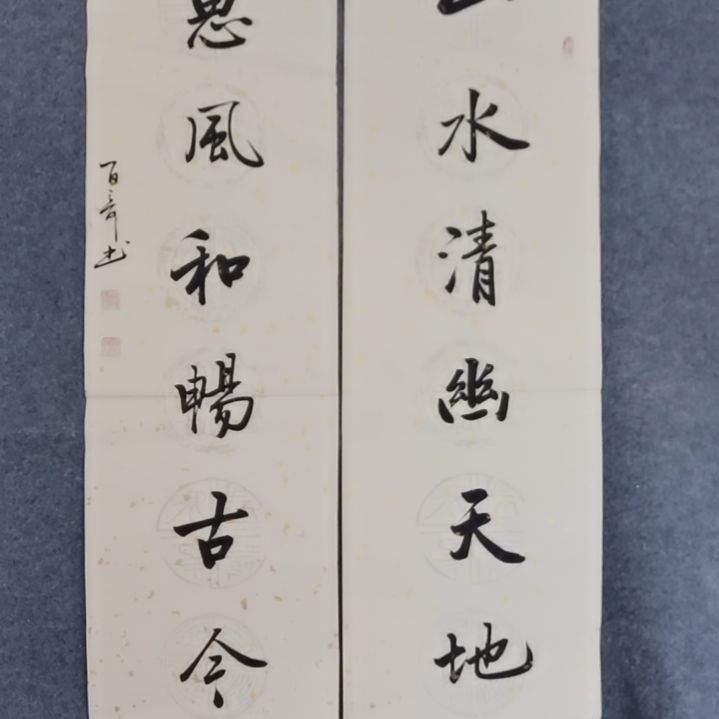 山水清幽天地
惠風和暢古今
百奇书